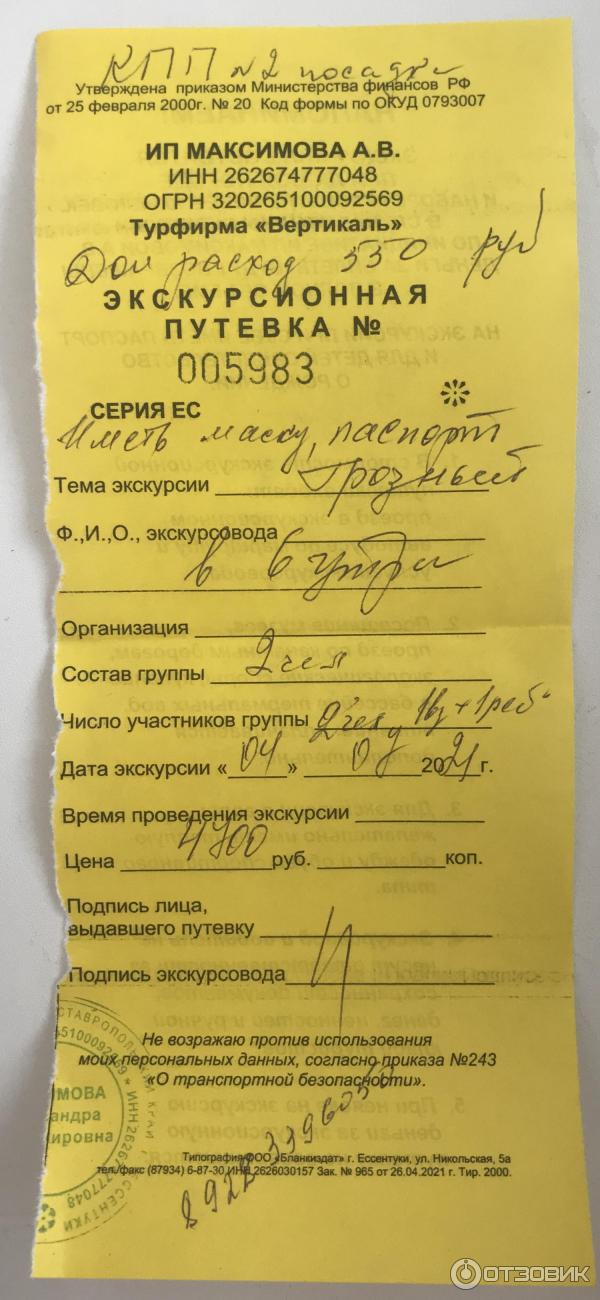 КПП №2 посадки
Утверждена приказом Министерства финансов РФ
от 25 февраля 2000г. № 20 Код формы по ОКУД 0793007
ИП МАКСИМОВА А.В.
ИНН 262674777048
ОГРН 320265100092569
Турфирма «Вертикаль»
Доп расход 550 руб
ЭКСКУРСИОННАЯ
ПУТЕВКА №
005983
СЕРИЯ ЕС
Иметь маску, паспорт
Тема экскурсии Грозный
Ф.,И.,О., экскурсовода
в 6 утра
Организация
Состав группы 2 чел
Число участников группы 2 чел 1вз + 1 реб
Дата экскурсии «04» 2021г.
Время проведения экскурсии
Цена 4700 руб. коп.
Подпись лица,
выдавшего путевку
Подпись экскурсовода
Не возражаю против использования
моих персональных данных, согласно приказа №243
«О транспортной безопасности».
СТАВРОПОЛЬСКИЙ КРАЙ
ИНН 262674777048
ЕССЕНТУКИ
Типография ООО «Бланкиздат» г. Ессентуки, ул. Никольская, 5а
тел./факс (87934) 6-87-30 ИНН 2626030157 Зак. № 965 от 26.04.2021 г. Тир. 2000.
ОТЗОВИК